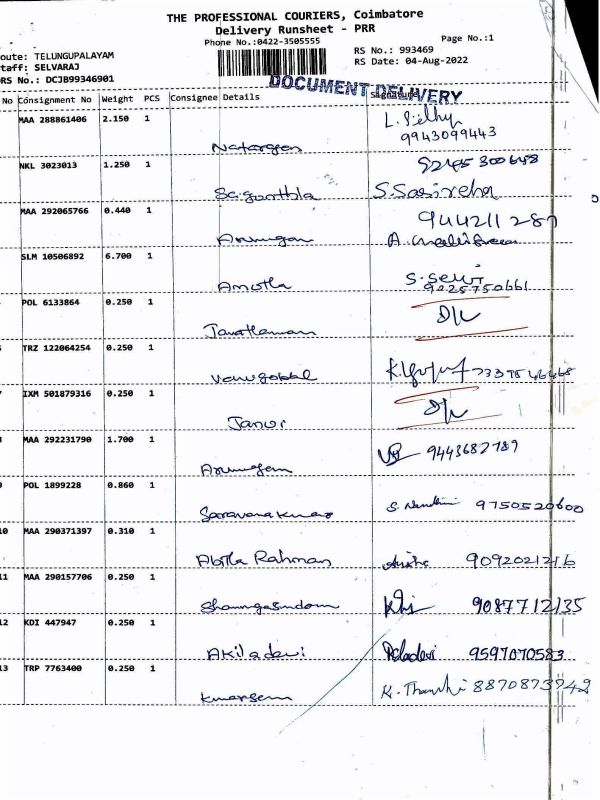 THE PROFESSIONAL COURIERS, Coimbatore
Delivery Runsheet - PRR
Phone No.:0422-3505555
Page No.:1
oute: TELUNGUPALAYAM
RS No.: 993469
taff: SELVARAJ
RS Date: 04-Aug-2022
RS No.: DCJB99346901
DOCUMENT DELIVERY
No Consignment No Weight PCS Consignee Details Signature
MAA 288861406 2.150 1
9943099443
NKL 3023013 1.250 1
S. Sasireha
MAA 292065766 0.440 1
944211287
Arumugam A.
SLM 10506892 6.700 1
Amutha S. Selvi
9225750661
POL 6133864 0.250 1
TRZ 122064254 0.250 1
Venugobal
IXM 501879316 0.250 1
MAA 292231790 1.700 1
Arumugam 9443682789
9 POL 1899228 0.860 1
Saravana kumar S. Nandhini 9750520600
10 MAA 290371397 0.310 1
Abtla Rahman 9092021216
11 MAA 290157706 0.250 1
9087712135
12 KDI 447947 0.250 1
AKiladevi 9597070583
13 TRP 7763400 0.250 1
K. Thamhi 8870873942